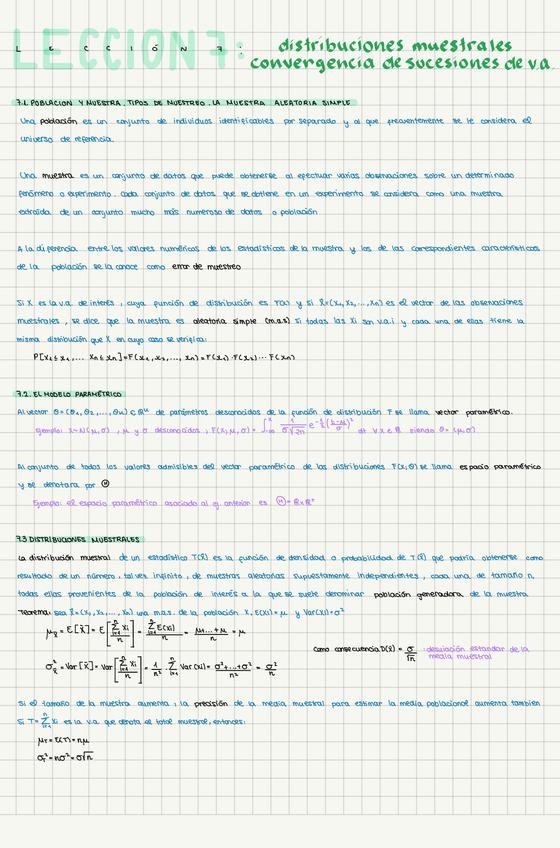 LECCIÓN 7: distribuciones muestrales
convergencia de sucesiones de v.a.
7.1. POBLACION Y MUESTRA. TIPOS DE MUESTREO. LA MUESTRA ALEATORIA SIMPLE
Una población es un conjunto de individuos identificables por separado y al que frecuentemente se le considera el
universo de referencia.
Una muestra es un conjunto de datos que puede obtenerse al efectuar varias observaciones sobre un determinado
fenómeno o experimento. Cada conjunto de datos que se obtiene en un experimento se considera como una muestra
extraída de un conjunto mucho más numeroso de datos o población
A la diferencia entre los valores numéricos de los estadísticos de la muestra y los de las correspondientes características
de la población se la conoce como error de muestreo
Si X es la v.a. de interés, cuya función de distribución es F(x) y si x̃=(x₁,x₂,...,xn) es el vector de las observaciones
muestrales, se dice que la muestra es aleatoria simple (m.a.s) si todas las Xi son v.a.i y cada una de ellas tiene la
misma distribución que X en cuyo caso se verifica:
P[X₁≤x₁,... Xn≤xn]=F(x₁,x₂,...,xn)=F(x₁)·F(x₂)···F(xn)
7.2. EL MODELO PARAMÉTRICO
Al vector θ=(θ₁,θ₂,...,θk) ∈ ℝᵏ de parámetros desconocidos de la función de distribución F se llama vector paramétrico.
Ejemplo: X~N(μ,σ), μ y σ desconocidos, F(x;μ,σ)= ∫_{-∞}^{x} 1/(σ√2π) e^{-½((t-μ)/σ)²} dt ∀x∈ℝ siendo θ=(μ,σ)
Al conjunto de todos los valores admisibles del vector paramétrico de las distribuciones F(x,θ) se llama espacio paramétrico
y se denotara por Ⓗ
Ejemplo: el espacio paramétrico asociado al ej. anterior es Ⓗ=ℝxℝ⁺
7.3 DISTRIBUCIONES MUESTRALES
La distribución muestral de un estadístico T(x̃) es la función de densidad o probabilidad de T(x̃) que podría obtenerse como
resultado de un número, tal vez infinito, de muestras aleatorias supuestamente independientes, cada una de tamaño n,
todas ellas provenientes de la población de interés a la que se suele denominar población generadora de la muestra
Teorema: sea x̃=(X₁,X₂,...,Xn) una m.a.s. de la población X, E(Xi)=μ y Var(Xi)=σ²
μx̄ = E[x̄] = E[∑_{i=1}^{n} Xi / n] = ∑_{i=1}^{n} E(Xi) / n = μ+...+μ / n = μ
Como consecuencia D(x̄) = σ/√n : desviación estandar de la
media muestral
σ²x̄ = Var[x̄] = Var[∑_{i=1}^{n} Xi / n] = 1/n² · ∑_{i=1}^{n} Var(Xi) = σ²+...+σ² / n² = σ²/n
Si el tamaño de la muestra aumenta, la precisión de la media muestral para estimar la media poblacional aumenta también
Si T=∑_{i=1}^{n} Xi es la v.a. que denota el total muestral, entonces:
μT = E(T) = nμ
σT² = nσ² = σ√n